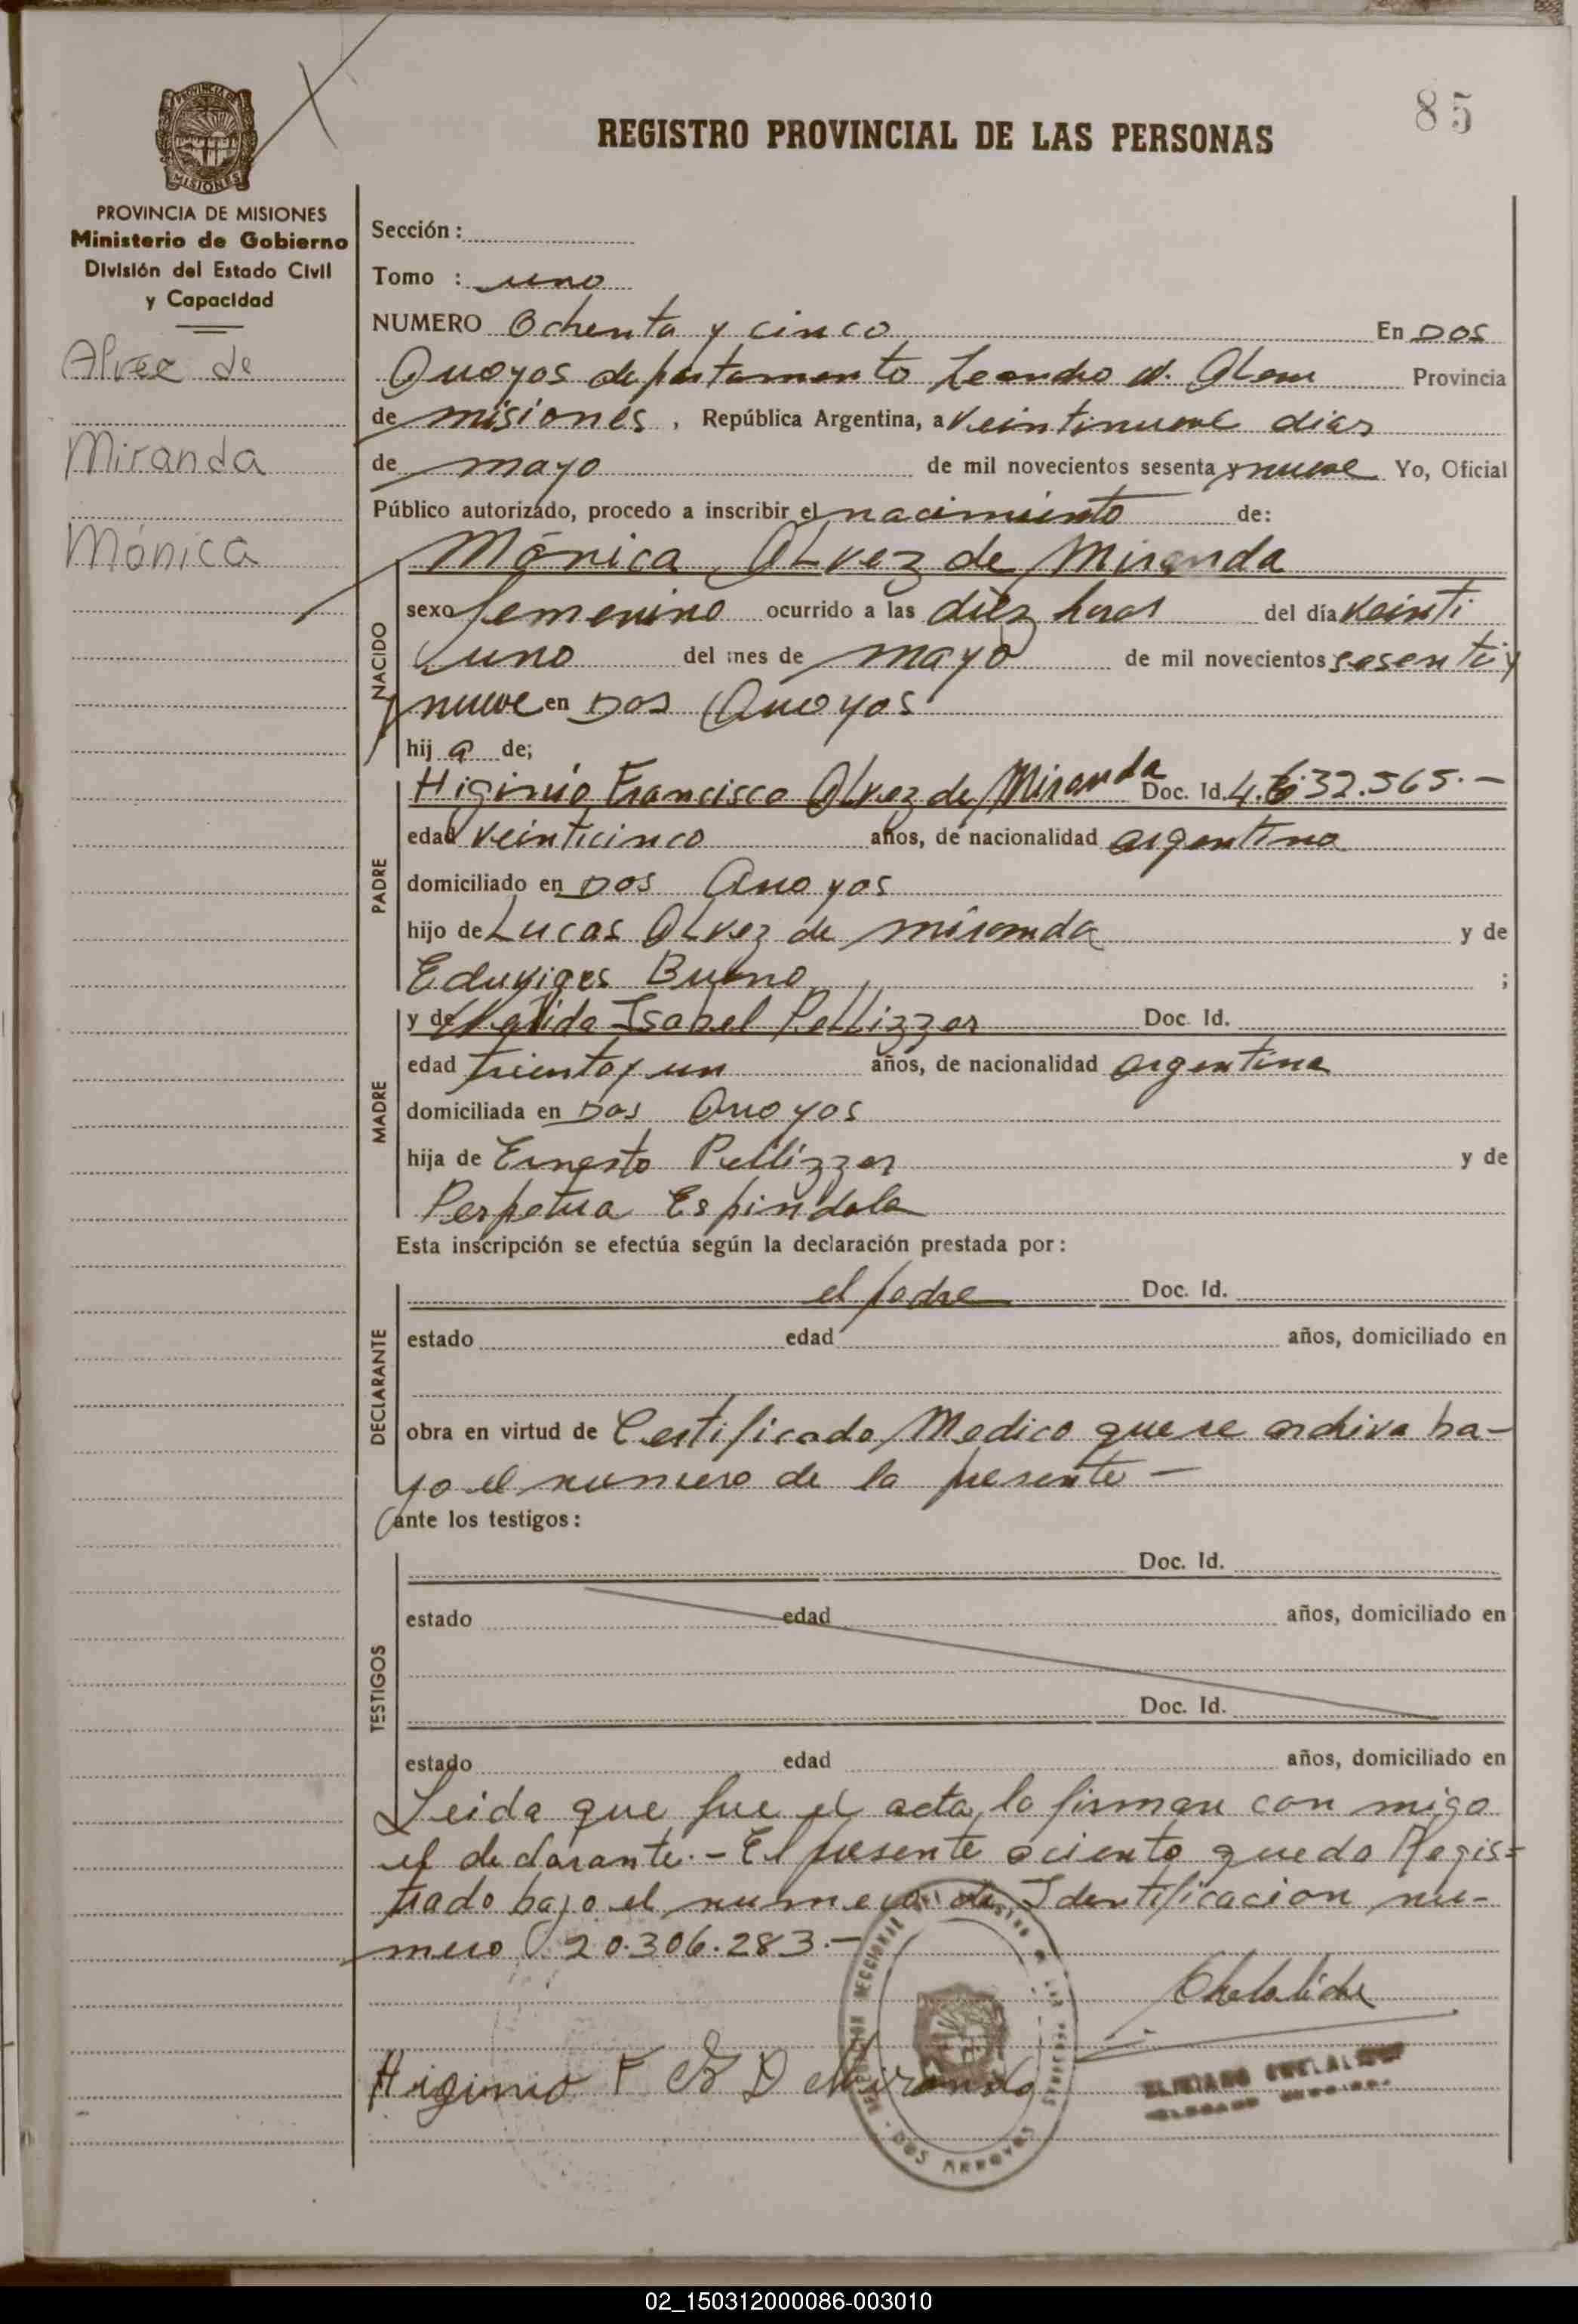 85
REGISTRO PROVINCIAL DE LAS PERSONAS
PROVINCIA DE
MISIONES
PROVINCIA DE MISIONES
Ministerio de Gobierno
División del Estado Civil
y Capacidad
Alvez de
Miranda
Mónica
Sección :
Tomo : uno
NUMERO Ochenta y cinco En Dos
Arroyos departamento Leandro N. Alem Provincia
de misiones, República Argentina, a veintinueve dias
de mayo de mil novecientos sesenta y nueve Yo, Oficial
Público autorizado, procedo a inscribir el nacimiento de:
Mónica Alvez de Miranda
NACIDO
sexo femenino ocurrido a las diez horas del día veinti
uno del mes de mayo de mil novecientos sesenti y
nueve en Dos Arroyos
hij a de;
PADRE
Higinio Francisco Alvez de Miranda Doc. Id. 4.632.565.-
edad veinticinco años, de nacionalidad argentina
domiciliado en Dos Arroyos
hijo de Lucas Alvez de miranda y de
Eduviges Bueno ;
MADRE
y de Isabel Pellizzer Doc. Id.
edad treinta y un años, de nacionalidad argentina
domiciliada en Dos Arroyos
hija de Ernesto Pellizzer y de
Perpetua Espindola
Esta inscripción se efectúa según la declaración prestada por :
DECLARANTE
el padre Doc. Id.
estado edad años, domiciliado en
obra en virtud de Certificado Medico que se archiva ba-
jo el numero de la presente -
ante los testigos :
TESTIGOS
Doc. Id.
estado edad años, domiciliado en
Doc. Id.
estado edad años, domiciliado en
Leida que fue el acta, la firman con migo
el declarante.- El presente aciento queda Regis=
trado bajo el numero de Identificacion nu-
mero 20.306.283.-
Higinio F D Miranda
DOS ARROYOS
02_150312000086-003010